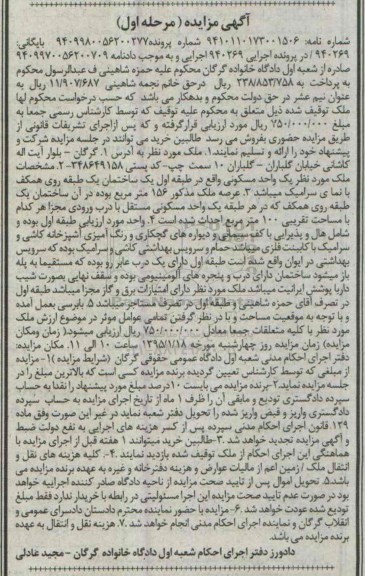 آگهی مزایده ( مرحله اول)
شماره نامه: ۹۴۱۰۱۱۰۱۷۳۰۰۱۵۰۶ شماره پرونده۹۴۰۹۹۸۰۰۵۶۲۰۰۲۷۷ بایگانی:
۹۴۰۲۶۹ / در پرونده اجرایی ۹۴۰۲۶۹ اجرایی و به موجب دادنامه ۹۴۰۹۹۷۰۰۵۶۲۰۰۷۰۹
صادره از شعبه اول دادگاه خانواده گرگان محکوم علیه حمزه شاهینی ف عبدالرسول محکوم
به پرداخت به ۲۳۸/۸۵۳/۷۵۸ ریال درحق خانم نجمه شاهینی ۱۱/۹۰۷/۶۸۷ ریال به
عنوان نیم عشر در حق دولت محکوم و بدهکار می باشد که حسب درخواست محکوم لها
ملک توقیف شده ذیل متعلق به محکوم علیه توقیف که توسط کارشناس رسمی جمعا به
مبلغ ۷۵۰/۰۰۰/۰۰۰ ریال مورد ارزیابی قرارگرفته و که پس ازاجرای تشریفات قانونی از
طریق مزایده حضوری بفروش می رسد طالبین خرید می توانند در جلسه مزایده شرکت و
پیشنهاد خود را ارائه و تسلیم نمایند.۱. ملک مورد نظر به آدرس ۱ گرگان – بلوار آیت اله
کاشانی خیابان گلباران – گلباران ۱۰ سمت چپ- کد پستی ۳۴۸۶۴۹۱۵۸-۲.مشخصات
ملک مورد نظر یک واحد مسکونی واقع در طبقه اول یک ساختمان یک طبقه روی همکف
با نما ی سرامیک میباشد ۳. عرصه ملک مذکور ۱۵۶ متر مربع بوده در آن ساختمان یک
طبقه روی همکف که در هر طبقه یک واحد مسکونی مستقل با درب ورودی مجزا هر کدام
با مساحت تقریبی ۱۰۰ متر مربع احداث شده است ۴. واحد مورد ارزیابی طبقه اول بوده و
شامل هال و پذیرایی با کف سرامیک و دیواره های گچکاری و رنگ آمیزی آشپزخانه کاشی و
سرامیک با کابینت فلزی میباشد حمام و سرویس بهداشتی کاشی و سرامیک بوده که سرویس
بهداشتی در ایوان واقع شده است طبقه اول دارای یک درب عابر رو بوده که مستقیما به پله
باز میشود ساختمان دارای درب و پنجره های آلومینیومی بوده و سقف نهایی بصورت شیب
دارا پوشش ایرانیت میباشد ملک مورد نظر دارای امتیازات برق و گاز مجزا میباشد طبقه اول
در تصرف آقای حمزه شاهینی و طبقه اول در تصرف مستاجر میباشد ۵. بابرسی بعمل آمده
و با توجه به موقعیت مساحت و با در نظر گرفتن تمامی عوامل موثر در موضوع ارزش ملک
مورد نظر با کلیه متعلقات جمعا معادل ۷۵۰/۰۰۰/۰۰۰ ریال ارزیابی میشود( زمان ومکان
مزایده) زمان مزایده روز چهارشنبه مورخه ۱۳۹۵/۱/۱۸ ساعت ۱۰ الی ۱۱. مکان مزایده:
دفتر اجرای احکام مدنی شعبه اول دادگاه عمومی حقوقی گرگان (شرایط مزایده) ۱- مزایده
از مبلغی که توسط کارشناس تعیین گردیده برنده مزایده کسی است که بالاترین مبلغ را در
جلسه مزایده نماید.۲-برنده مزایده می بایست ۱۰درصد مبلغ مورد پیشنهاد را نقدا به حساب
سپرده دادگستری تودیع و مابقی آن را ظرف ۱ ماه از تاریخ اجرای مزایده به حساب سپرده
دادگستری واریز و فیش واریز شده را تحویل دفتر شعبه نماید در غیر این صورت وفق ماده
۱۲۹ قانون اجرای احکام مدنی سپرده پس از کسر هزینه های اجرایی به نفع دولت ضبط
و آگهی مزایده تجدید خواهد شد .۳-طالبین خرید میتوانند ۱ هفته قبل از اجرای مزایده با
هماهنگی این اجرای احکام از ملک توقیف شده بازدید نمایند .۴-. کلیه هزینه های نقل و
انتقال ملک / زمین اعم از مالیات عوارض و هزینه دفترخانه و غیره به عهده برنده مزایده می
باشد.۵. تحویل اموال پس از تایید صحت مزایده از ناحیه دادگاه صادر کننده اجراییه خواهد
بود در صورت عدم تایید صحت مزایده این اجرا مسئولیتی در رابطه با خریدار ندارد فقط مبلغ
تودیع شده عودت خواهد شد .۶- مزایده با حضور نماینده محترم دادستان دادسرای عمومی و
انقلاب گرگان و نماینده اجرای احکام مدنی انجام خواهد شد .۷. هزینه نقل و انتقال به عهده
برنده مزایده می باشد.
دادورز دفتر اجرای احکام شعبه اول دادگاه خانواده گرگان – مجید عادلی